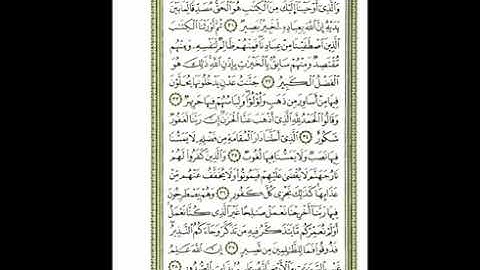 وَٱلَّذِىٓ أَوْحَيْنَآ إِلَيْكَ مِنَ ٱلْكِتَٰبِ هُوَ ٱلْحَقُّ مُصَدِّقًا لِّمَا بَيْنَ
يَدَيْهِ إِنَّ ٱللَّهَ بِعِبَادِهِۦ لَخَبِيرٌۢ بَصِيرٌ ٣١ ثُمَّ أَوْرَثْنَا ٱلْكِتَٰبَ
ٱلَّذِينَ ٱصْطَفَيْنَا مِنْ عِبَادِنَا فَمِنْهُمْ ظَالِمٌ لِّنَفْسِهِۦ وَمِنْهُم
مُّقْتَصِدٌ وَمِنْهُمْ سَابِقٌۢ بِٱلْخَيْرَٰتِ بِإِذْنِ ٱللَّهِ ذَٰلِكَ هُوَ
ٱلْفَضْلُ ٱلْكَبِيرُ ٣٢ جَنَّٰتُ عَدْنٍ يَدْخُلُونَهَا يُحَلَّوْنَ
فِيهَا مِنْ أَسَاوِرَ مِن ذَهَبٍ وَلُؤْلُؤًا وَلِبَاسُهُمْ فِيهَا حَرِيرٌ ٣٣
وَقَالُوا۟ ٱلْحَمْدُ لِلَّهِ ٱلَّذِىٓ أَذْهَبَ عَنَّا ٱلْحَزَنَ إِنَّ رَبَّنَا لَغَفُورٌ
شَكُورٌ ٣٤ ٱلَّذِىٓ أَحَلَّنَا دَارَ ٱلْمُقَامَةِ مِن فَضْلِهِۦ لَا يَمَسُّنَا
فِيهَا نَصَبٌ وَلَا يَمَسُّنَا فِيهَا لُغُوبٌ ٣٥ وَٱلَّذِينَ كَفَرُوا۟ لَهُمْ
نَارُ جَهَنَّمَ لَا يُقْضَىٰ عَلَيْهِمْ فَيَمُوتُوا۟ وَلَا يُخَفَّفُ عَنْهُم مِّنْ
عَذَابِهَا كَذَٰلِكَ نَجْزِى كُلَّ كَفُورٍ ٣٦ وَهُمْ يَصْطَرِخُونَ
فِيهَا رَبَّنَآ أَخْرِجْنَا نَعْمَلْ صَٰلِحًا غَيْرَ ٱلَّذِى كُنَّا نَعْمَلُ
أَوَلَمْ نُعَمِّرْكُم مَّا يَتَذَكَّرُ فِيهِ مَن تَذَكَّرَ وَجَآءَكُمُ ٱلنَّذِيرُ
فَذُوقُوا۟ فَمَا لِلظَّٰلِمِينَ مِن نَّصِيرٍ ٣٧ إِنَّ ٱللَّهَ عَٰلِمُ
غَيْبِ ٱلسَّمَٰوَٰتِ وَٱلْأَرْضِ إِنَّهُۥ عَلِيمٌۢ بِذَاتِ ٱلصُّدُورِ ٣٨